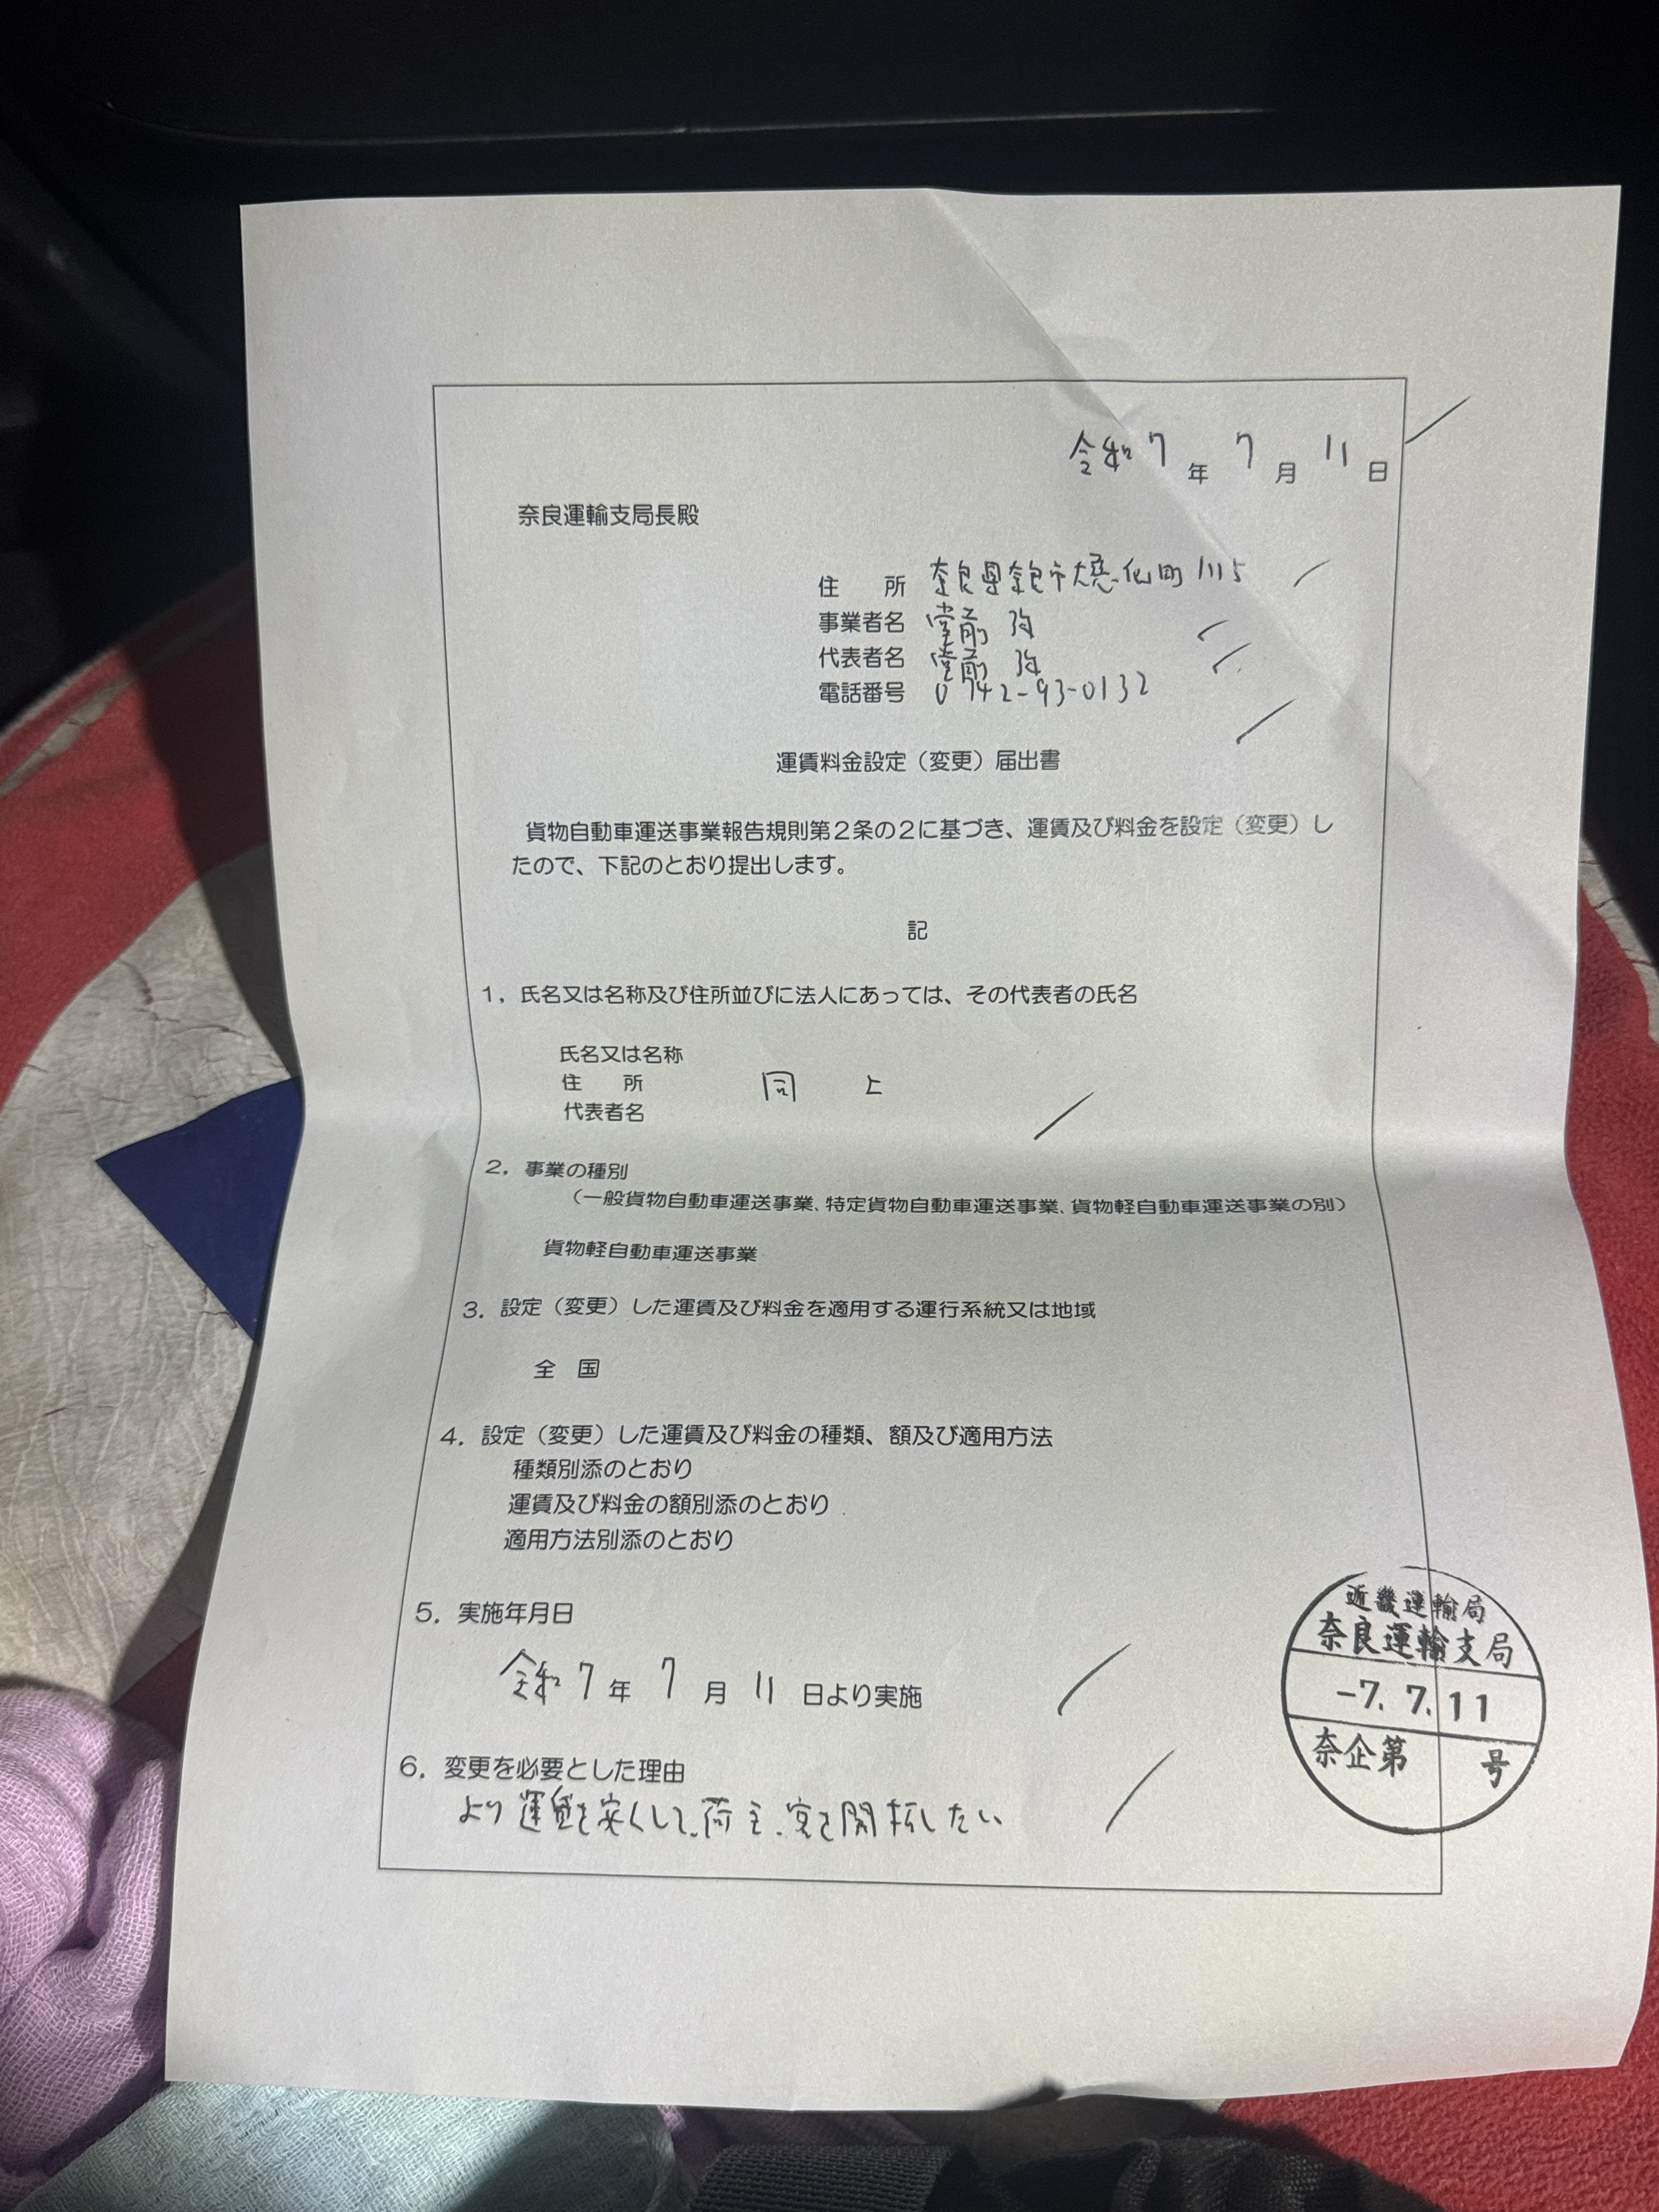 令和7年7月11日
奈良運輸支局長殿
住　所 奈良県奈良市大慈仙町1115
事業者名 堂前
代表者名 堂前
電話番号 0742-93-0132
運賃料金設定（変更）届出書
貨物自動車運送事業報告規則第２条の２に基づき、運賃及び料金を設定（変更）し
たので、下記のとおり提出します。
記
１．氏名又は名称及び住所並びに法人にあっては、その代表者の氏名
氏名又は名称
住　所　同　上
代表者名
２．事業の種別
（一般貨物自動車運送事業、特定貨物自動車運送事業、貨物軽自動車運送事業の別）
貨物軽自動車運送事業
３．設定（変更）した運賃及び料金を適用する運行系統又は地域
全　国
４．設定（変更）した運賃及び料金の種類、額及び適用方法
種類別添のとおり
運賃及び料金の額別添のとおり
適用方法別添のとおり
５．実施年月日
令和7年7月11日より実施
６．変更を必要とした理由
より運賃を安くして、荷主、客を開拓したい
近畿運輸局
奈良運輸支局
-7. 7. 11
奈企第　　号